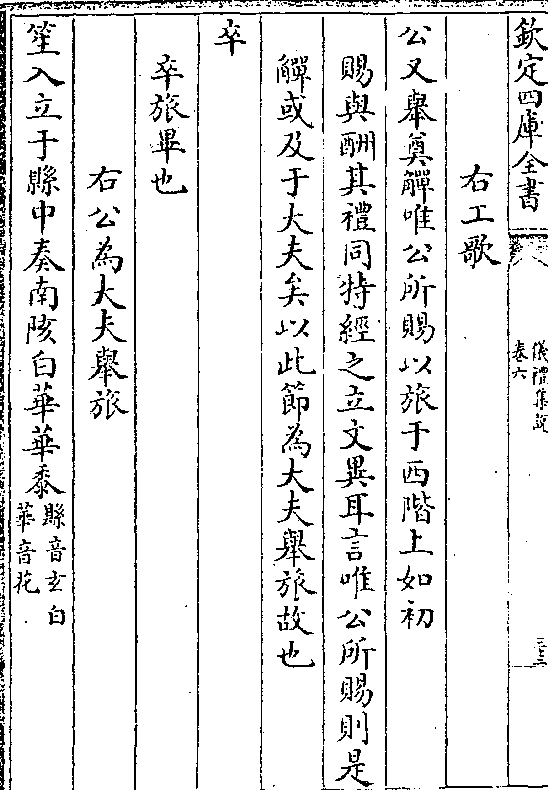 欽定四庫全書
儀禮集說
卷六
三三
右工歌
公又舉奠觶唯公所賜以旅于西階上如初
賜與酬其禮同特經之立文異耳言唯公所賜則是
觶或及于大夫矣以此節為大夫舉旅故也
卒
卒旅畢也
右公為大夫舉旅
笙入立于縣中奏南陔白華華黍縣音玄白
華音花